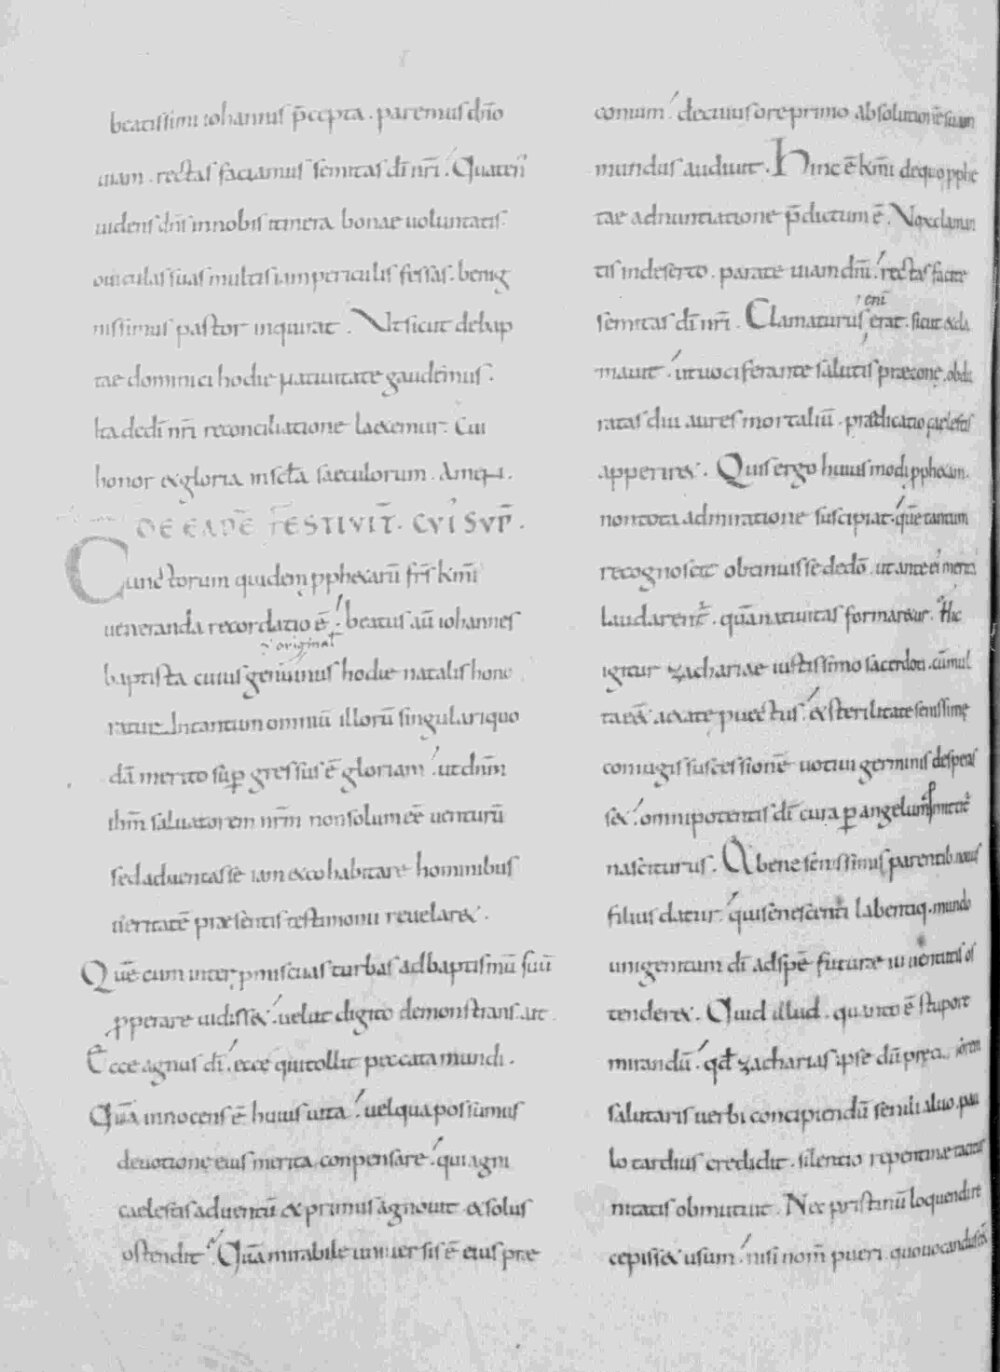 beatissimi iohannis p̄cepta . paremus dn̄o
uiam . rectas faciamus semitas dī nr̄i . Quaten̄
uidens dn̄s innobis itinera bonae uoluntatis .
ouiculas suas multis iam periculis fessas . benig
nissimus pastor inquirat . Vt sicut debap
tae dominici hodie natiuitate gaudemus .
Ita dedī nr̄i reconciliatione laetemur . Cui
honor & gloria insc̄la saeculorum . Amen .
DE EADĒ FESTIVIT̄ . CVI SVP̄ .
Cunctorum quidem pphetarū fr̄s km̄i
ueneranda recordatio ē . beatus aū iohannes
original̄
baptista cuius genuinus hodie natalis hono
ratur . Intantum omniū illorū singulari quo
dā merito sup gressus ē gloriam . ut dn̄m
ihm̄ saluatorem nr̄m nonsolum eē uenturū
sed aduentasse iam & cohabitare hominibus
ueritatē praesentis testimonii reuelar& .
Quē cum inter pmiscuas turbas adbaptismū suū
pperare uidiss& . uelut digito demonstrans . ait .
Ecce agnus dī . ecce qui tollit peccata mundi .
Quā innocens ē huius uita . uel qua possumus
deuotione eius merita conpensare . qui agni
caelestis aduentū & primus agnouit & solus
ostendit . Quā mirabile uniuersis ē eius prae
conium . de cuius ore primo absolutionē suam
mundus audiuit . Hinc ē km̄i dequo pphe
tae adnuntiatione p̄dictum ē . Vox claman
tis indeserto . parate uiam dn̄i . rectas facite
enī
semitas dī nr̄i . Clamaturus erat . sicut & cla
mauit . ut uociferante salutis praecone . obdu
ratas diu aures mortaliū . praedicatio caelestis
apperir& . Quis ergo huius modi pphetam .
non tota admiratione suscipiat . quē tantum
recognoscit obtinuisse dedō . ut ante ei merita
laudarent̄ . quā natiuitas formaretur . Hic
igitur zachariae iustissimo sacerdoti . cū mul
ta e& aetate puectus . & sterilitate senissimę
coniugis successionē uotiui germinis desperas
s& . omnipotentis dī cura p angelum pmittit̄
nasciturus . A bene senissimis parentib natus
filius datur . qui senescenti labentiq . mundo
unigenitum dī adspē futurae iuuentutis os
tender& . Quid illud . quanto ē stupore
mirandū . qd zacharias ipse dū
salutaris uerbi concipiendū senili aluo . pau
lo tardius credidit . silentio repentinae tacitur
nitatis obmutuit . Nec pristinū loquendi re
cepiss& usum . nisi nom̄ pueri . quo uocandus ēs&